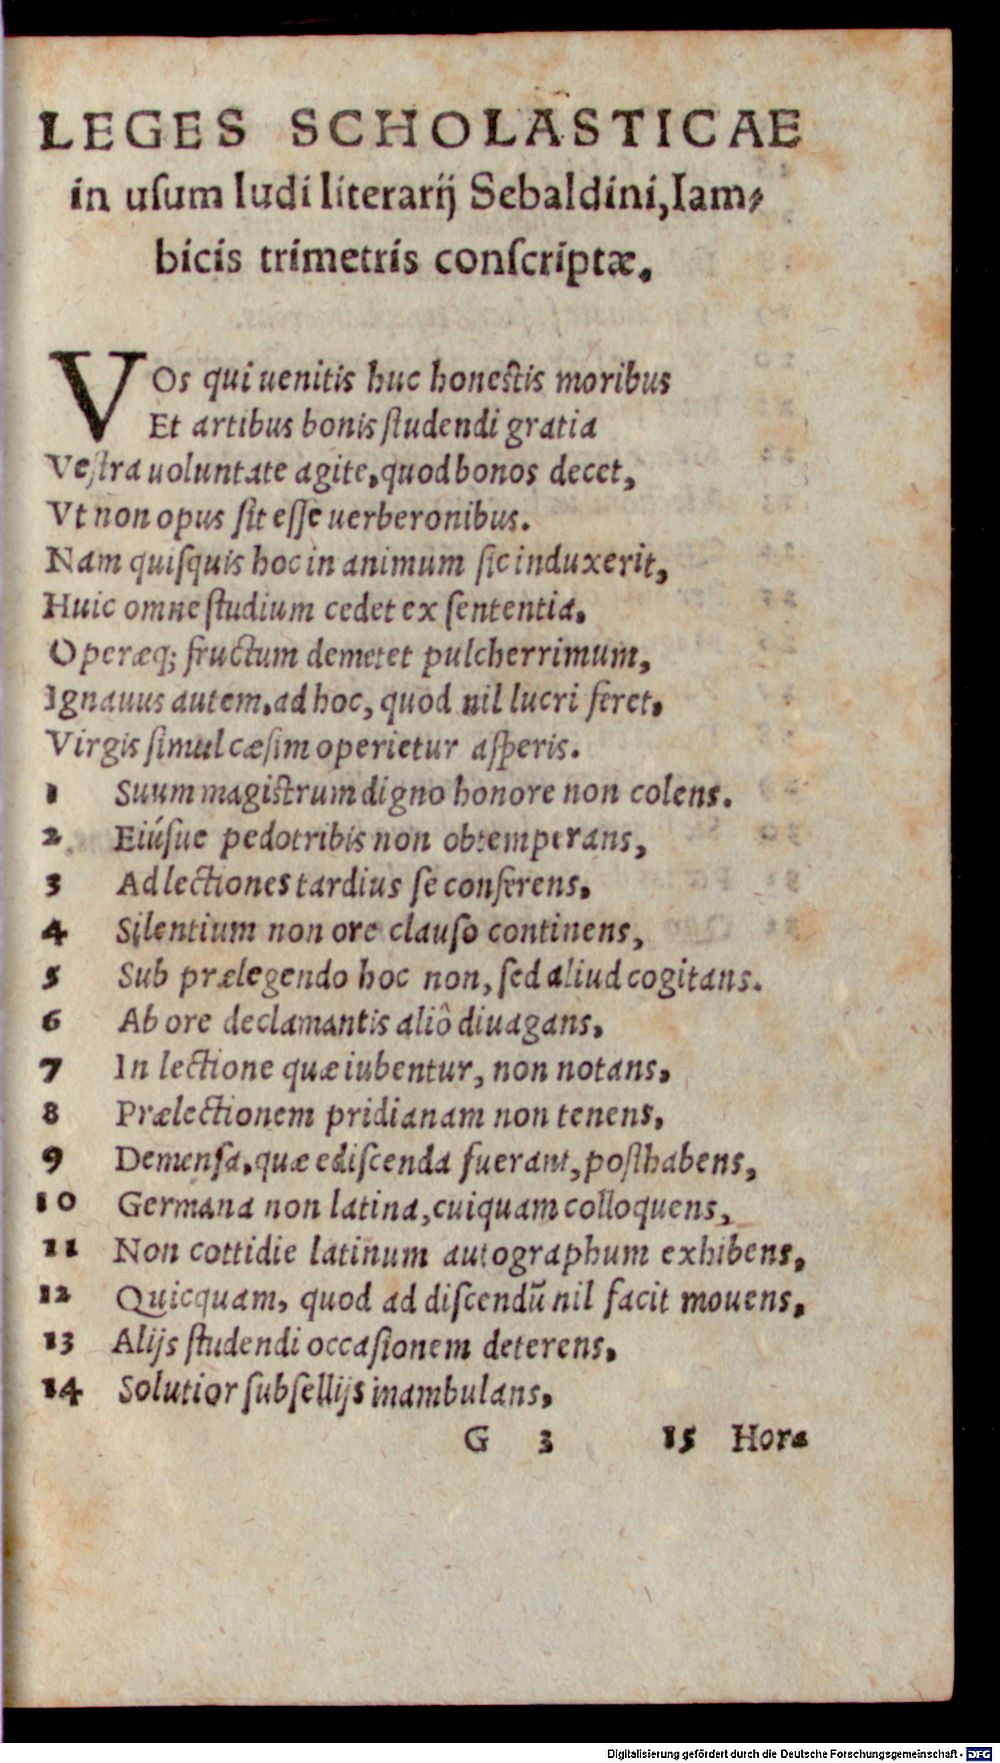 LEGES SCHOLASTICAE
in uſum ludi literarij Sebaldini, Iam⸗
bicis trimetris conſcriptæ.
VOs qui uenitis huc honeſtis moribus
Et artibus bonis ſtudendi gratia
Veſtra uoluntate agite, quod bonos decet,
Vt non opus ſit eſſe uerberonibus.
Nam quiſquis hoc in animum ſic induxerit,
Huic omne ſtudium cedet ex ſententia.
Operæq; fructum demetet pulcherrimum,
Ignauus autem, ad hoc, quod nil lucri feret,
Virgis ſimul cæſim operietur aſperis.
1 Suum magiſtrum digno honore non colens.
2 Eiúſue pedotribis non obtemperans,
3 Ad lectiones tardius ſe conferens,
4 Silentium non ore clauſo continens,
5 Sub prælegendo hoc non, ſed aliud cogitans.
6 Ab ore declamantis aliô diuagans,
7 In lectione quæ iubentur, non notans,
8 Prælectionem pridianam non tenens,
9 Demenſa, quæ ediſcenda fuerant, poſthabens,
10 Germana non latina, cuiquam colloquens,
11 Non cottidie latinum autographum exhibens,
12 Quicquam, quod ad diſcendũ nil facit mouens,
13 Alijs ſtudendi occaſionem deterens,
14 Solutior ſubſellijs inambulans,
G 3 15 Hora
Digitalisierung gefördert durch die Deutsche Forschungsgemeinschaft - DFG